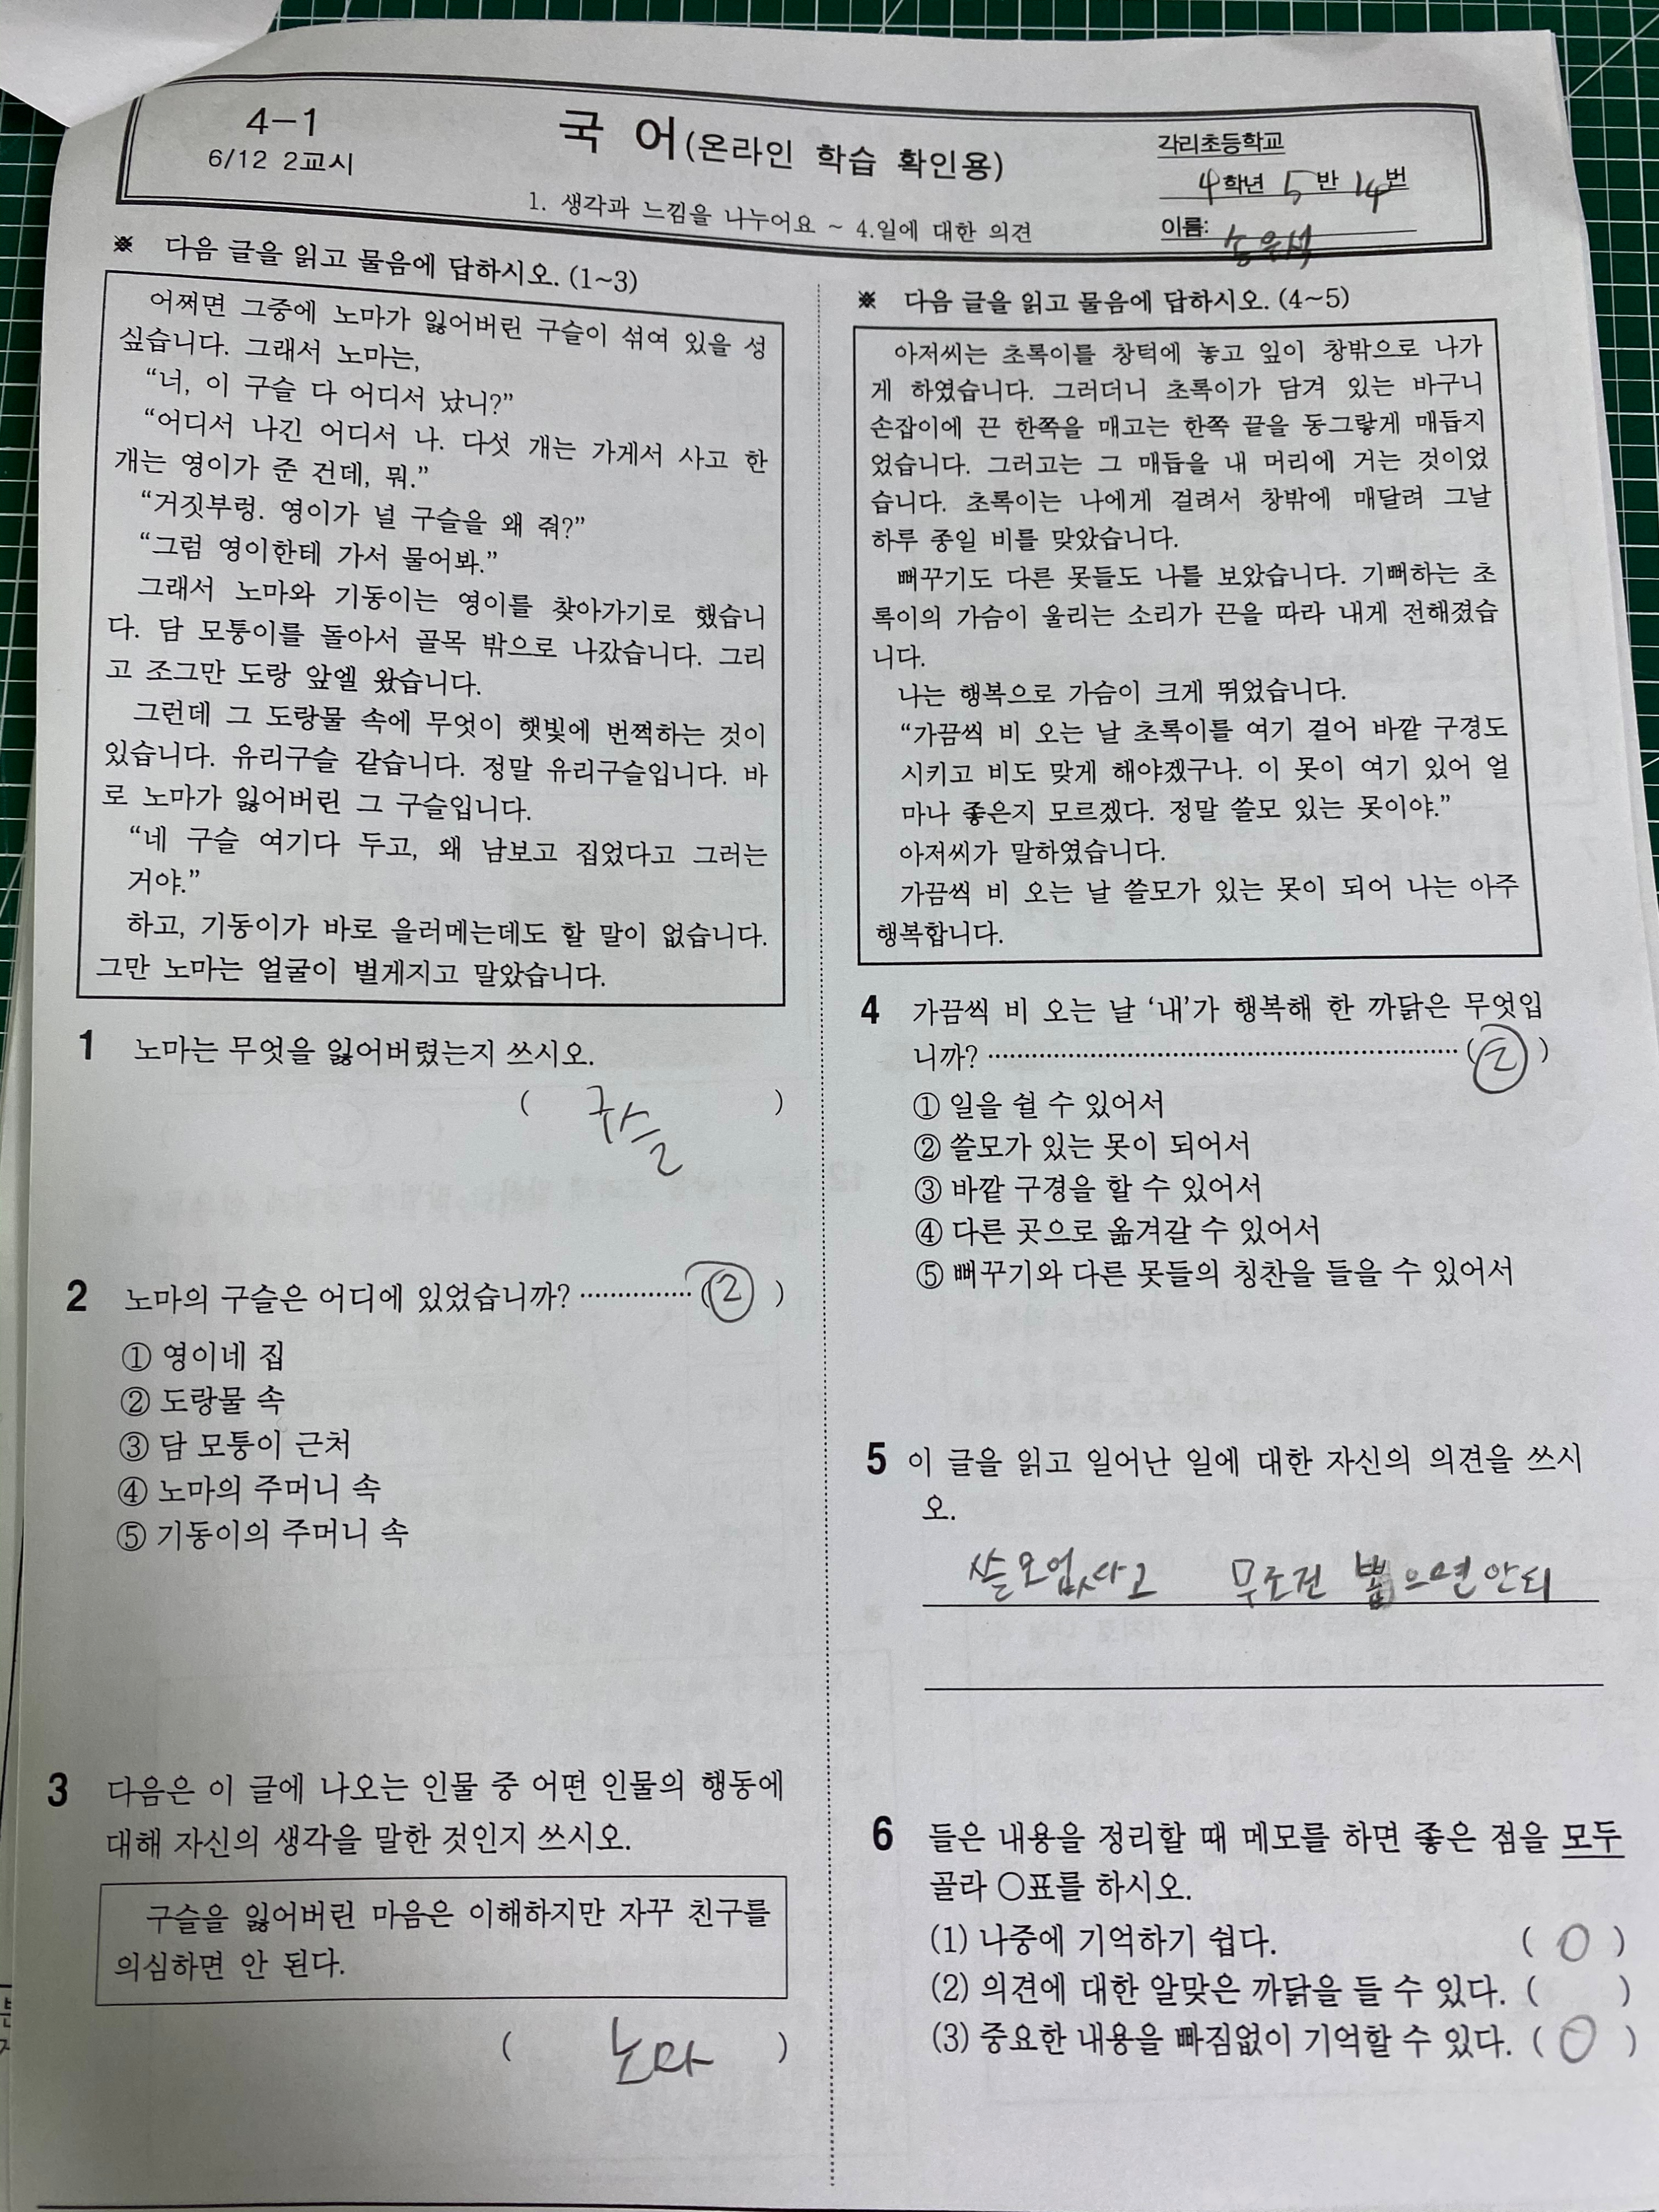 4-1
6/12 2교시
국 어(온라인 학습 확인용)
1. 생각과 느낌을 나누어요 ~ 4.일에 대한 의견
각리초등학교
4학년 5반 14번
이름:
※ 다음 글을 읽고 물음에 답하시오. (1~3)
어쩌면 그중에 노마가 잃어버린 구슬이 섞여 있을 성
싶습니다. 그래서 노마는,
“너, 이 구슬 다 어디서 났니?”
“어디서 나긴 어디서 나. 다섯 개는 가게서 사고 한
개는 영이가 준 건데, 뭐.”
“거짓부렁. 영이가 널 구슬을 왜 줘?”
“그럼 영이한테 가서 물어봐.”
그래서 노마와 기동이는 영이를 찾아가기로 했습니
다. 담 모퉁이를 돌아서 골목 밖으로 나갔습니다. 그리
고 조그만 도랑 앞엘 왔습니다.
그런데 그 도랑물 속에 무엇이 햇빛에 번쩍하는 것이
있습니다. 유리구슬 같습니다. 정말 유리구슬입니다. 바
로 노마가 잃어버린 그 구슬입니다.
“네 구슬 여기다 두고, 왜 남보고 집었다고 그러는
거야.”
하고, 기동이가 바로 을러메는데도 할 말이 없습니다.
그만 노마는 얼굴이 벌게지고 말았습니다.
1 노마는 무엇을 잃어버렸는지 쓰시오.
( 구슬 )
2 노마의 구슬은 어디에 있었습니까? ················ (② )
① 영이네 집
② 도랑물 속
③ 담 모퉁이 근처
④ 노마의 주머니 속
⑤ 기동이의 주머니 속
3 다음은 이 글에 나오는 인물 중 어떤 인물의 행동에
대해 자신의 생각을 말한 것인지 쓰시오.
구슬을 잃어버린 마음은 이해하지만 자꾸 친구를
의심하면 안 된다.
( 노마 )
※ 다음 글을 읽고 물음에 답하시오. (4~5)
아저씨는 초록이를 창턱에 놓고 잎이 창밖으로 나가
게 하였습니다. 그러더니 초록이가 담겨 있는 바구니
손잡이에 끈 한쪽을 매고는 한쪽 끝을 동그랗게 매듭지
었습니다. 그러고는 그 매듭을 내 머리에 거는 것이었
습니다. 초록이는 나에게 걸려서 창밖에 매달려 그날
하루 종일 비를 맞았습니다.
뻐꾸기도 다른 못들도 나를 보았습니다. 기뻐하는 초
록이의 가슴이 울리는 소리가 끈을 따라 내게 전해졌습
니다.
나는 행복으로 가슴이 크게 뛰었습니다.
“가끔씩 비 오는 날 초록이를 여기 걸어 바깥 구경도
시키고 비도 맞게 해야겠구나. 이 못이 여기 있어 얼
마나 좋은지 모르겠다. 정말 쓸모 있는 못이야.”
아저씨가 말하였습니다.
가끔씩 비 오는 날 쓸모가 있는 못이 되어 나는 아주
행복합니다.
4 가끔씩 비 오는 날 ‘내’가 행복해 한 까닭은 무엇입
니까? ································································ (② )
① 일을 쉴 수 있어서
② 쓸모가 있는 못이 되어서
③ 바깥 구경을 할 수 있어서
④ 다른 곳으로 옮겨갈 수 있어서
⑤ 뻐꾸기와 다른 못들의 칭찬을 들을 수 있어서
5 이 글을 읽고 일어난 일에 대한 자신의 의견을 쓰시
오.
쓸모업사고 무조건 뽑으면안되
6 들은 내용을 정리할 때 메모를 하면 좋은 점을 모두
골라 ○표를 하시오.
(1) 나중에 기억하기 쉽다. ( O )
(2) 의견에 대한 알맞은 까닭을 들 수 있다. ( )
(3) 중요한 내용을 빠짐없이 기억할 수 있다. ( O )